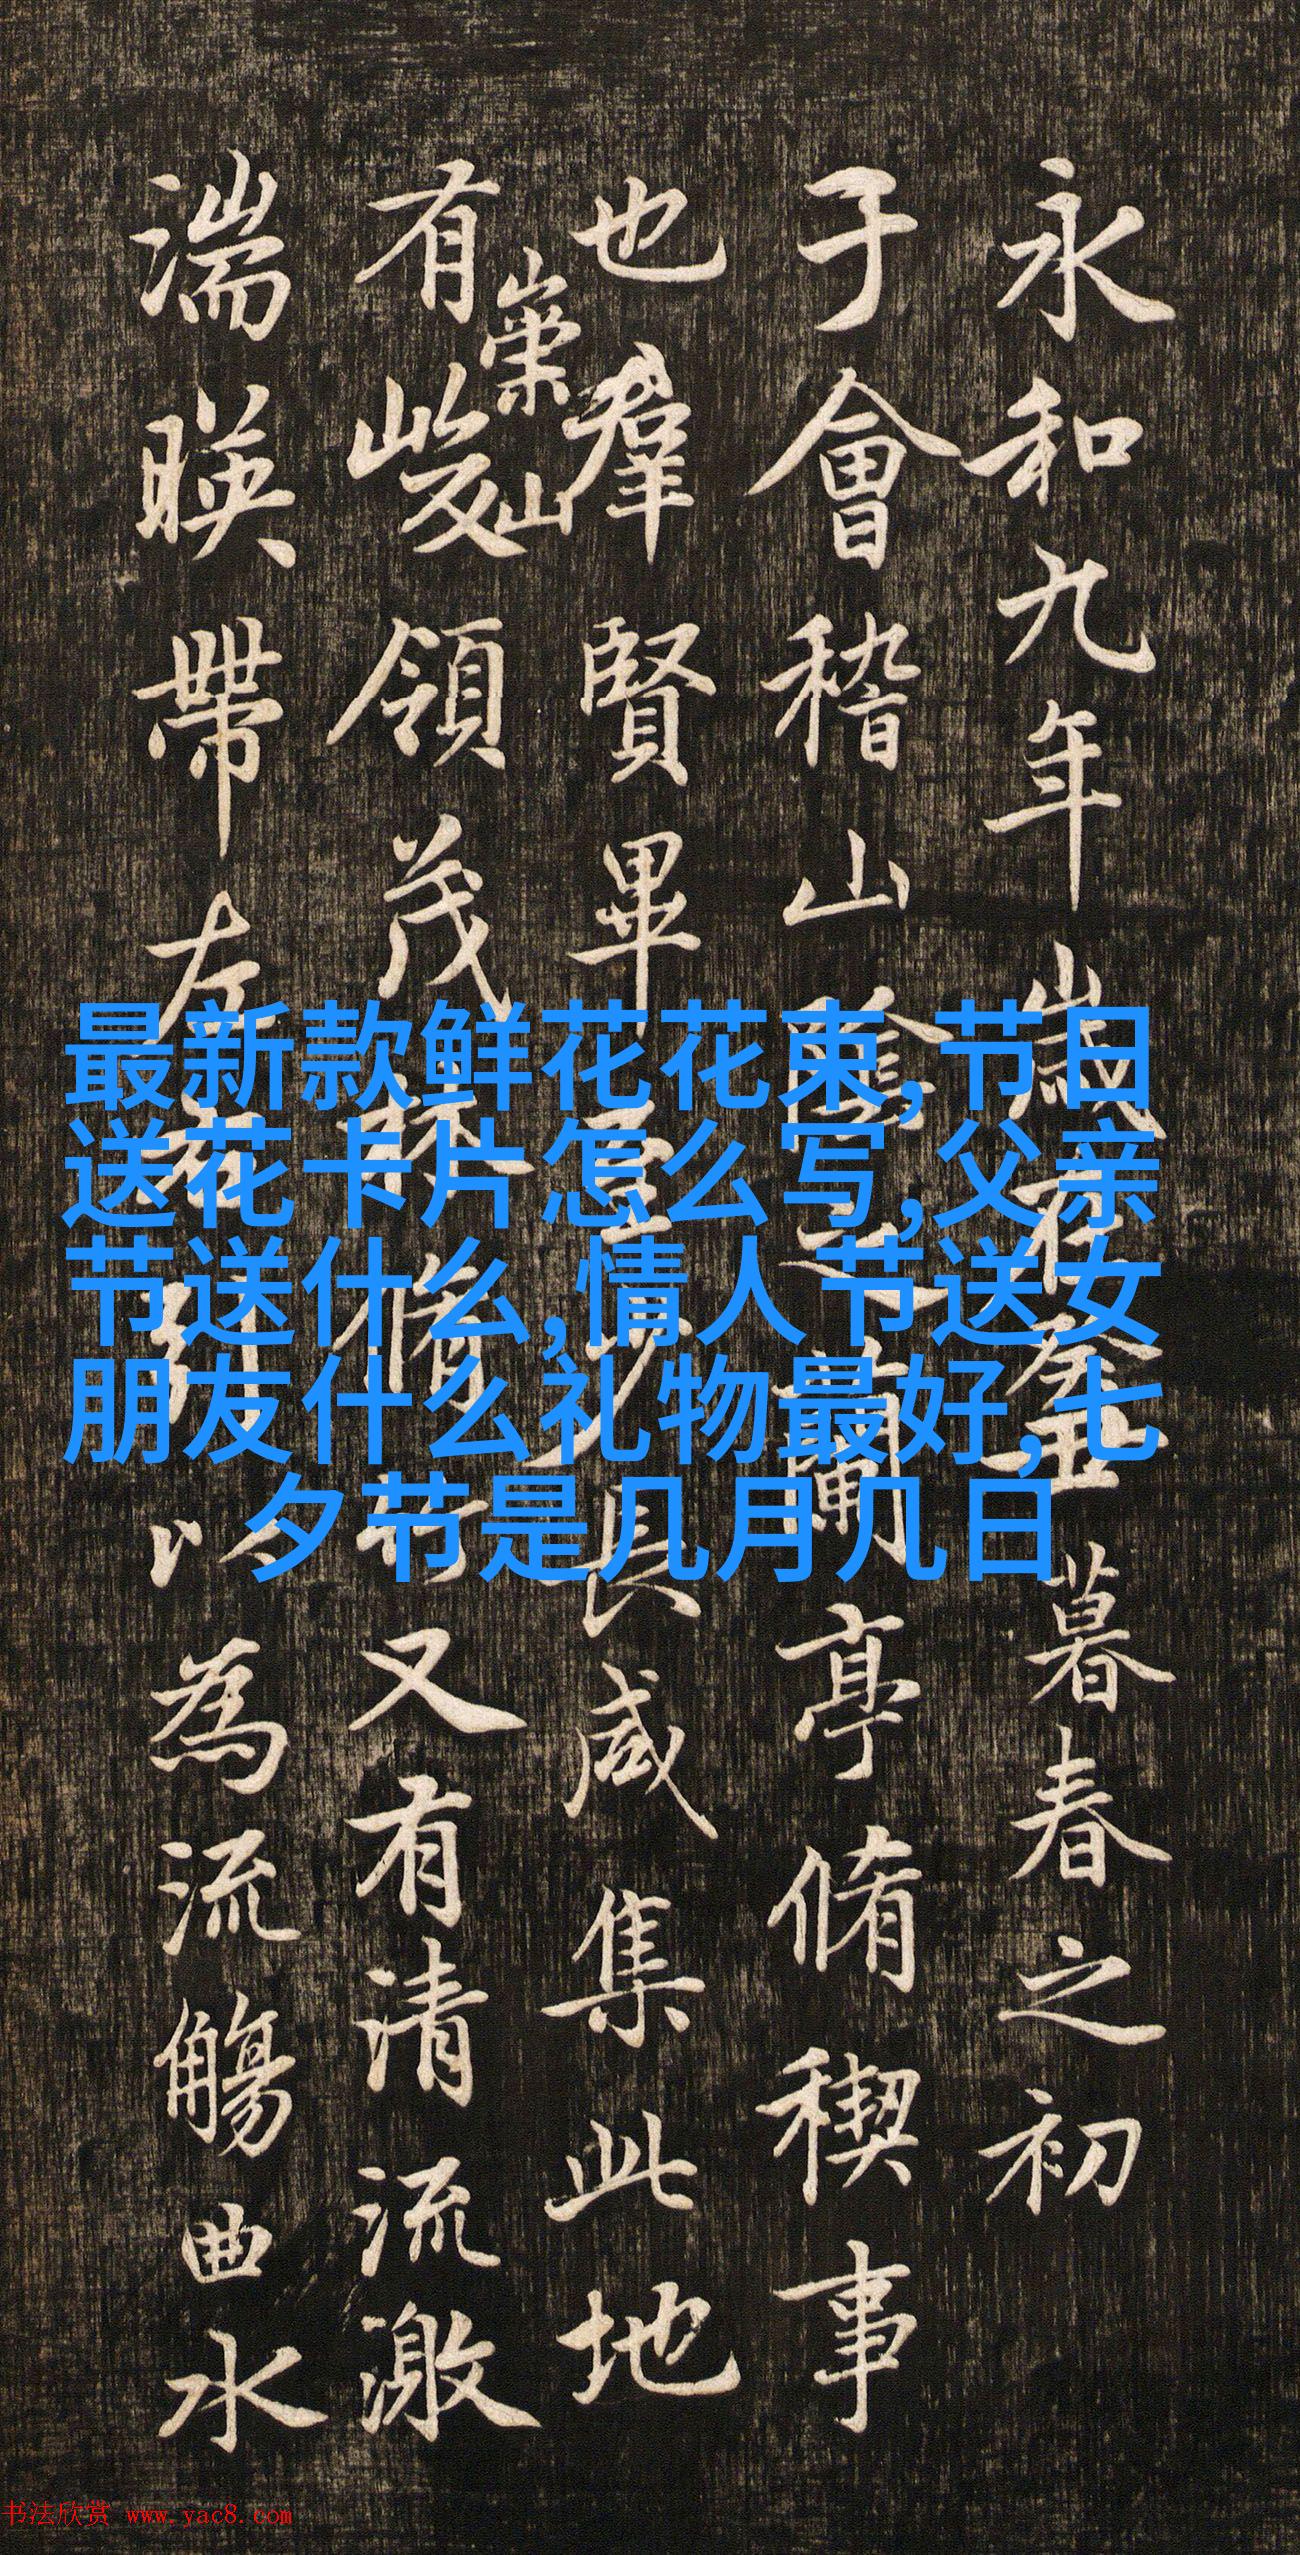 永和九年歲在癸丑暮春之初
于會稽山陰之蘭亭脩稧事
也羣賢畢至少長咸集此地
有崇山峻領茂林脩竹又有清流激
湍暎帶左右引以為流觴曲水
最新款鲜花花束,节日
送花卡片怎么写,父亲
节送什么,情人节送女
朋友什么礼物最好,七
夕节是几月几日
书法欣赏 www.yac8.com